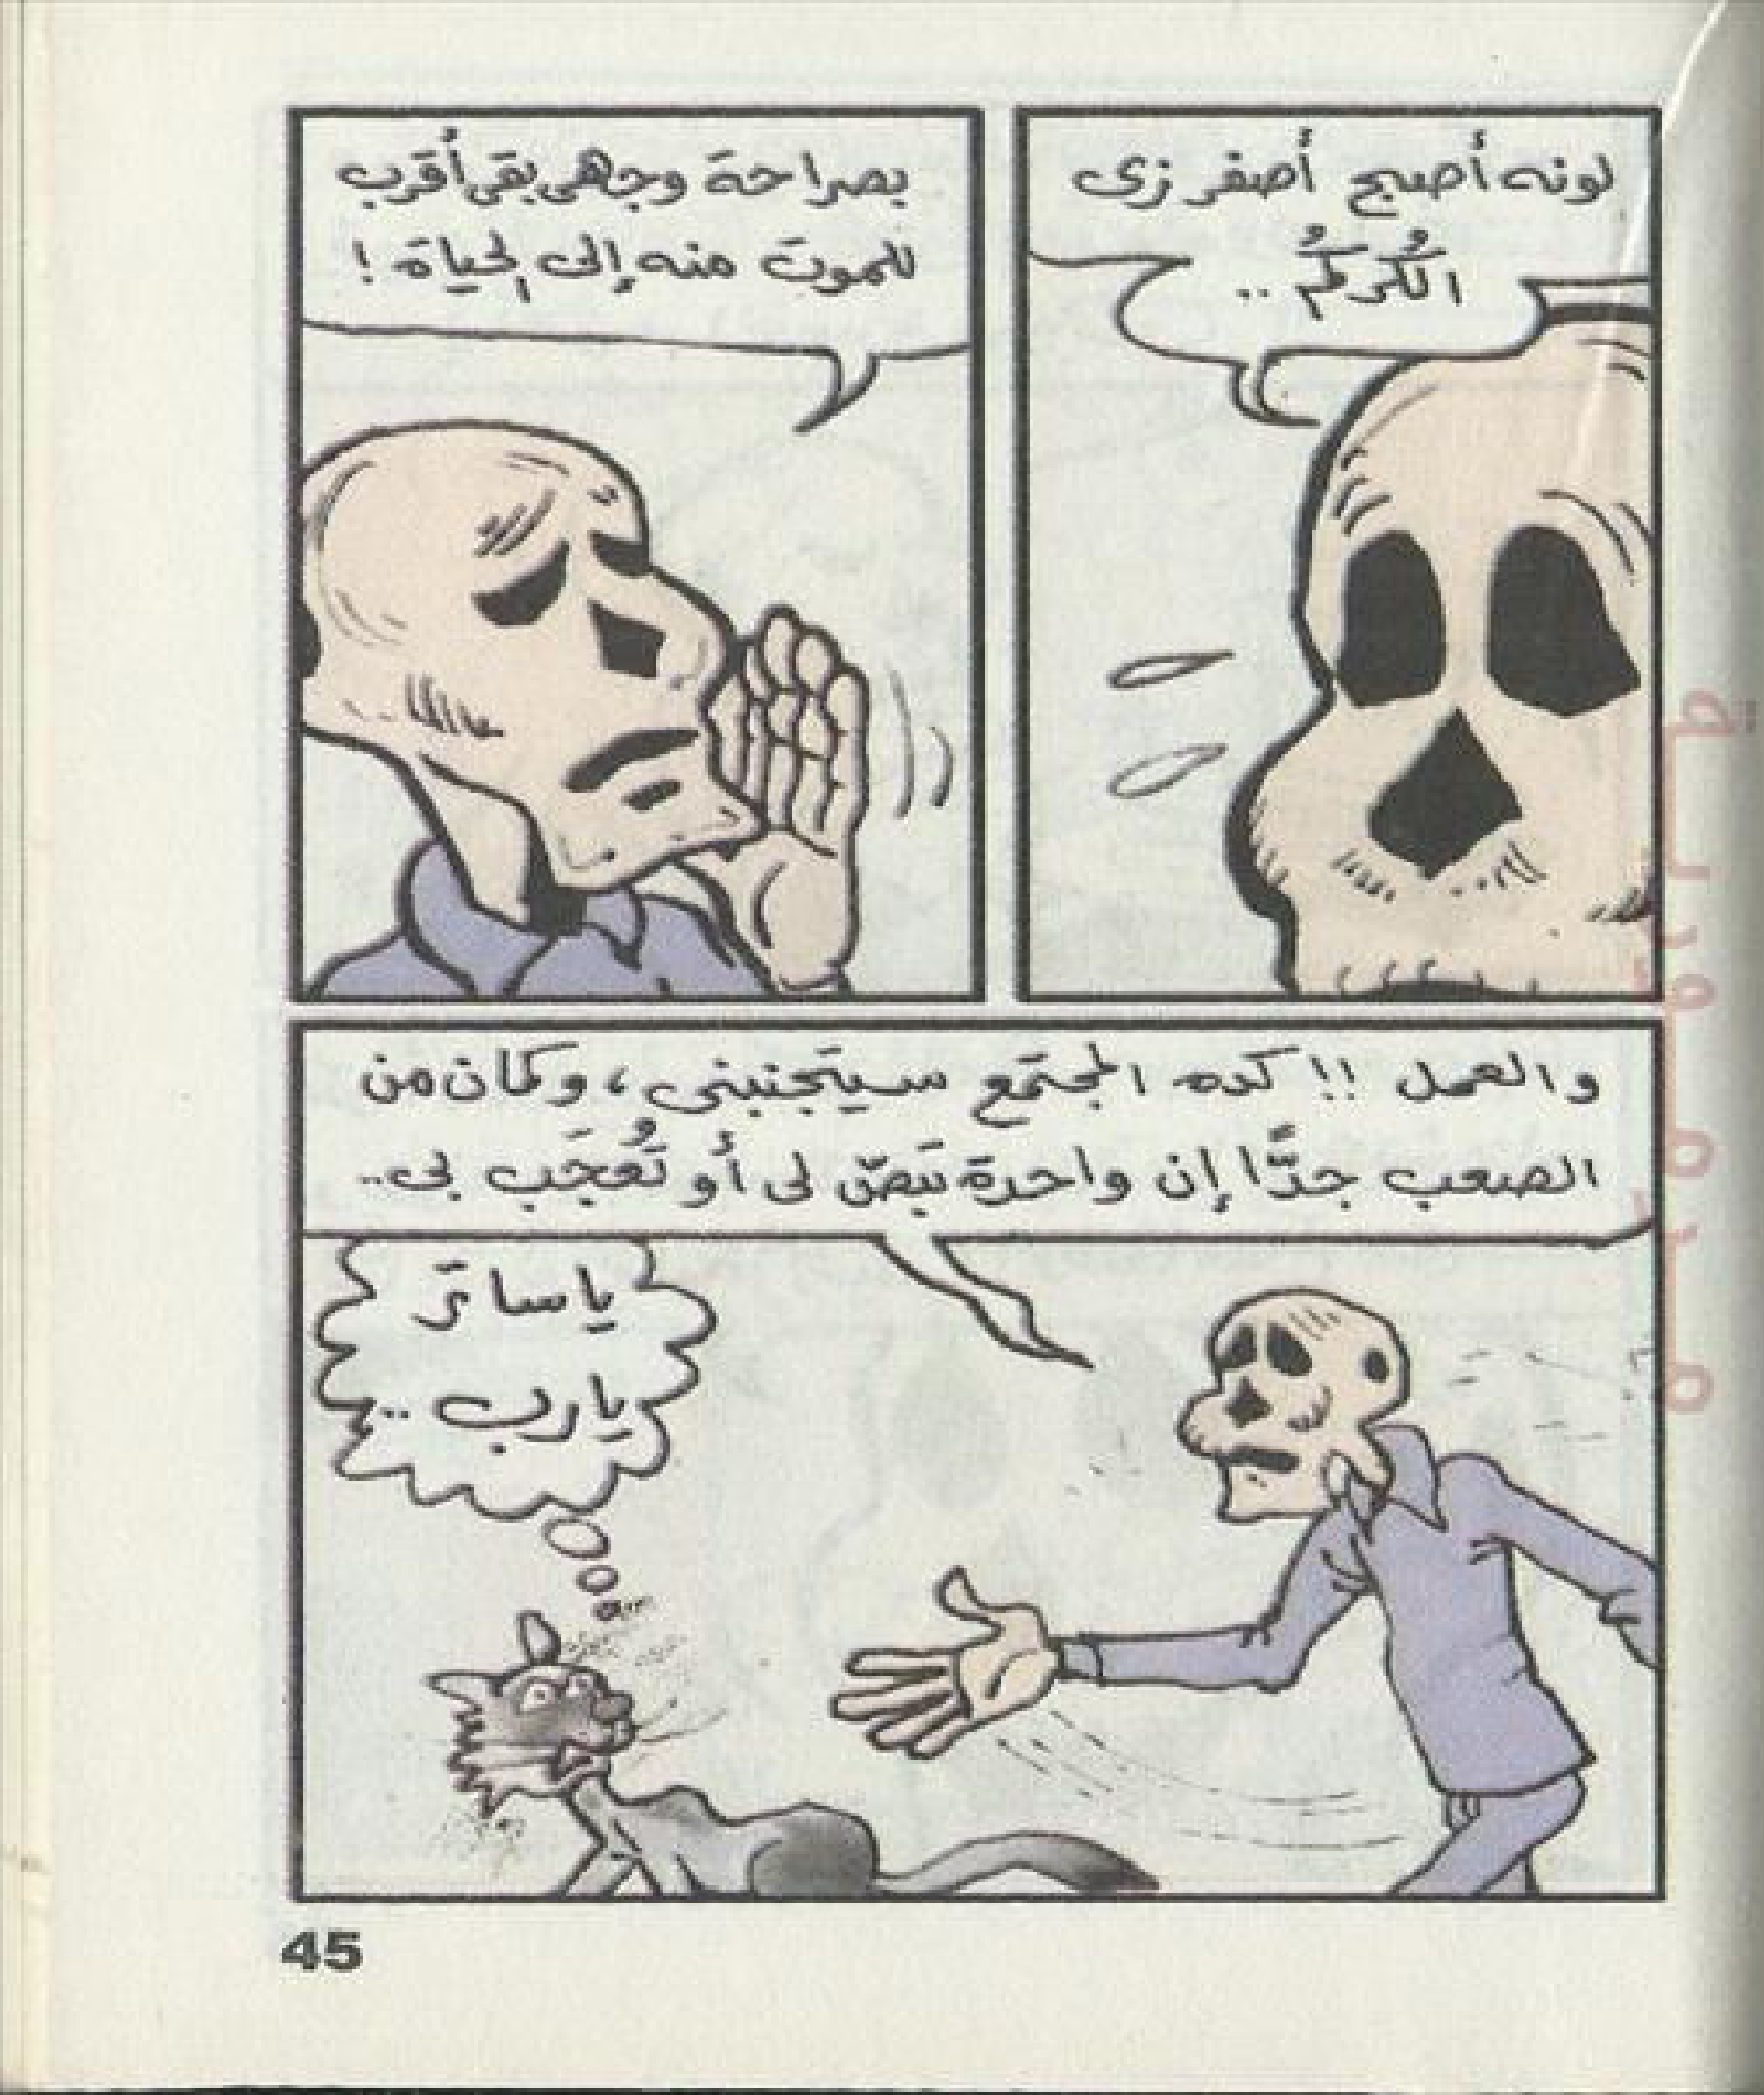 لونه أصبح أصفر زى
الكُركُم ..
بصراحة وجهى بقى أقرب
للموت منه إلى الحياة !
والعمل !! كده المجتمع سيتجنبنى ، وكمان من
الصعب جدًّا إن واحدة تبَصّ لى أو تُعجَب بى ..
ياساتر
يارب ..
45